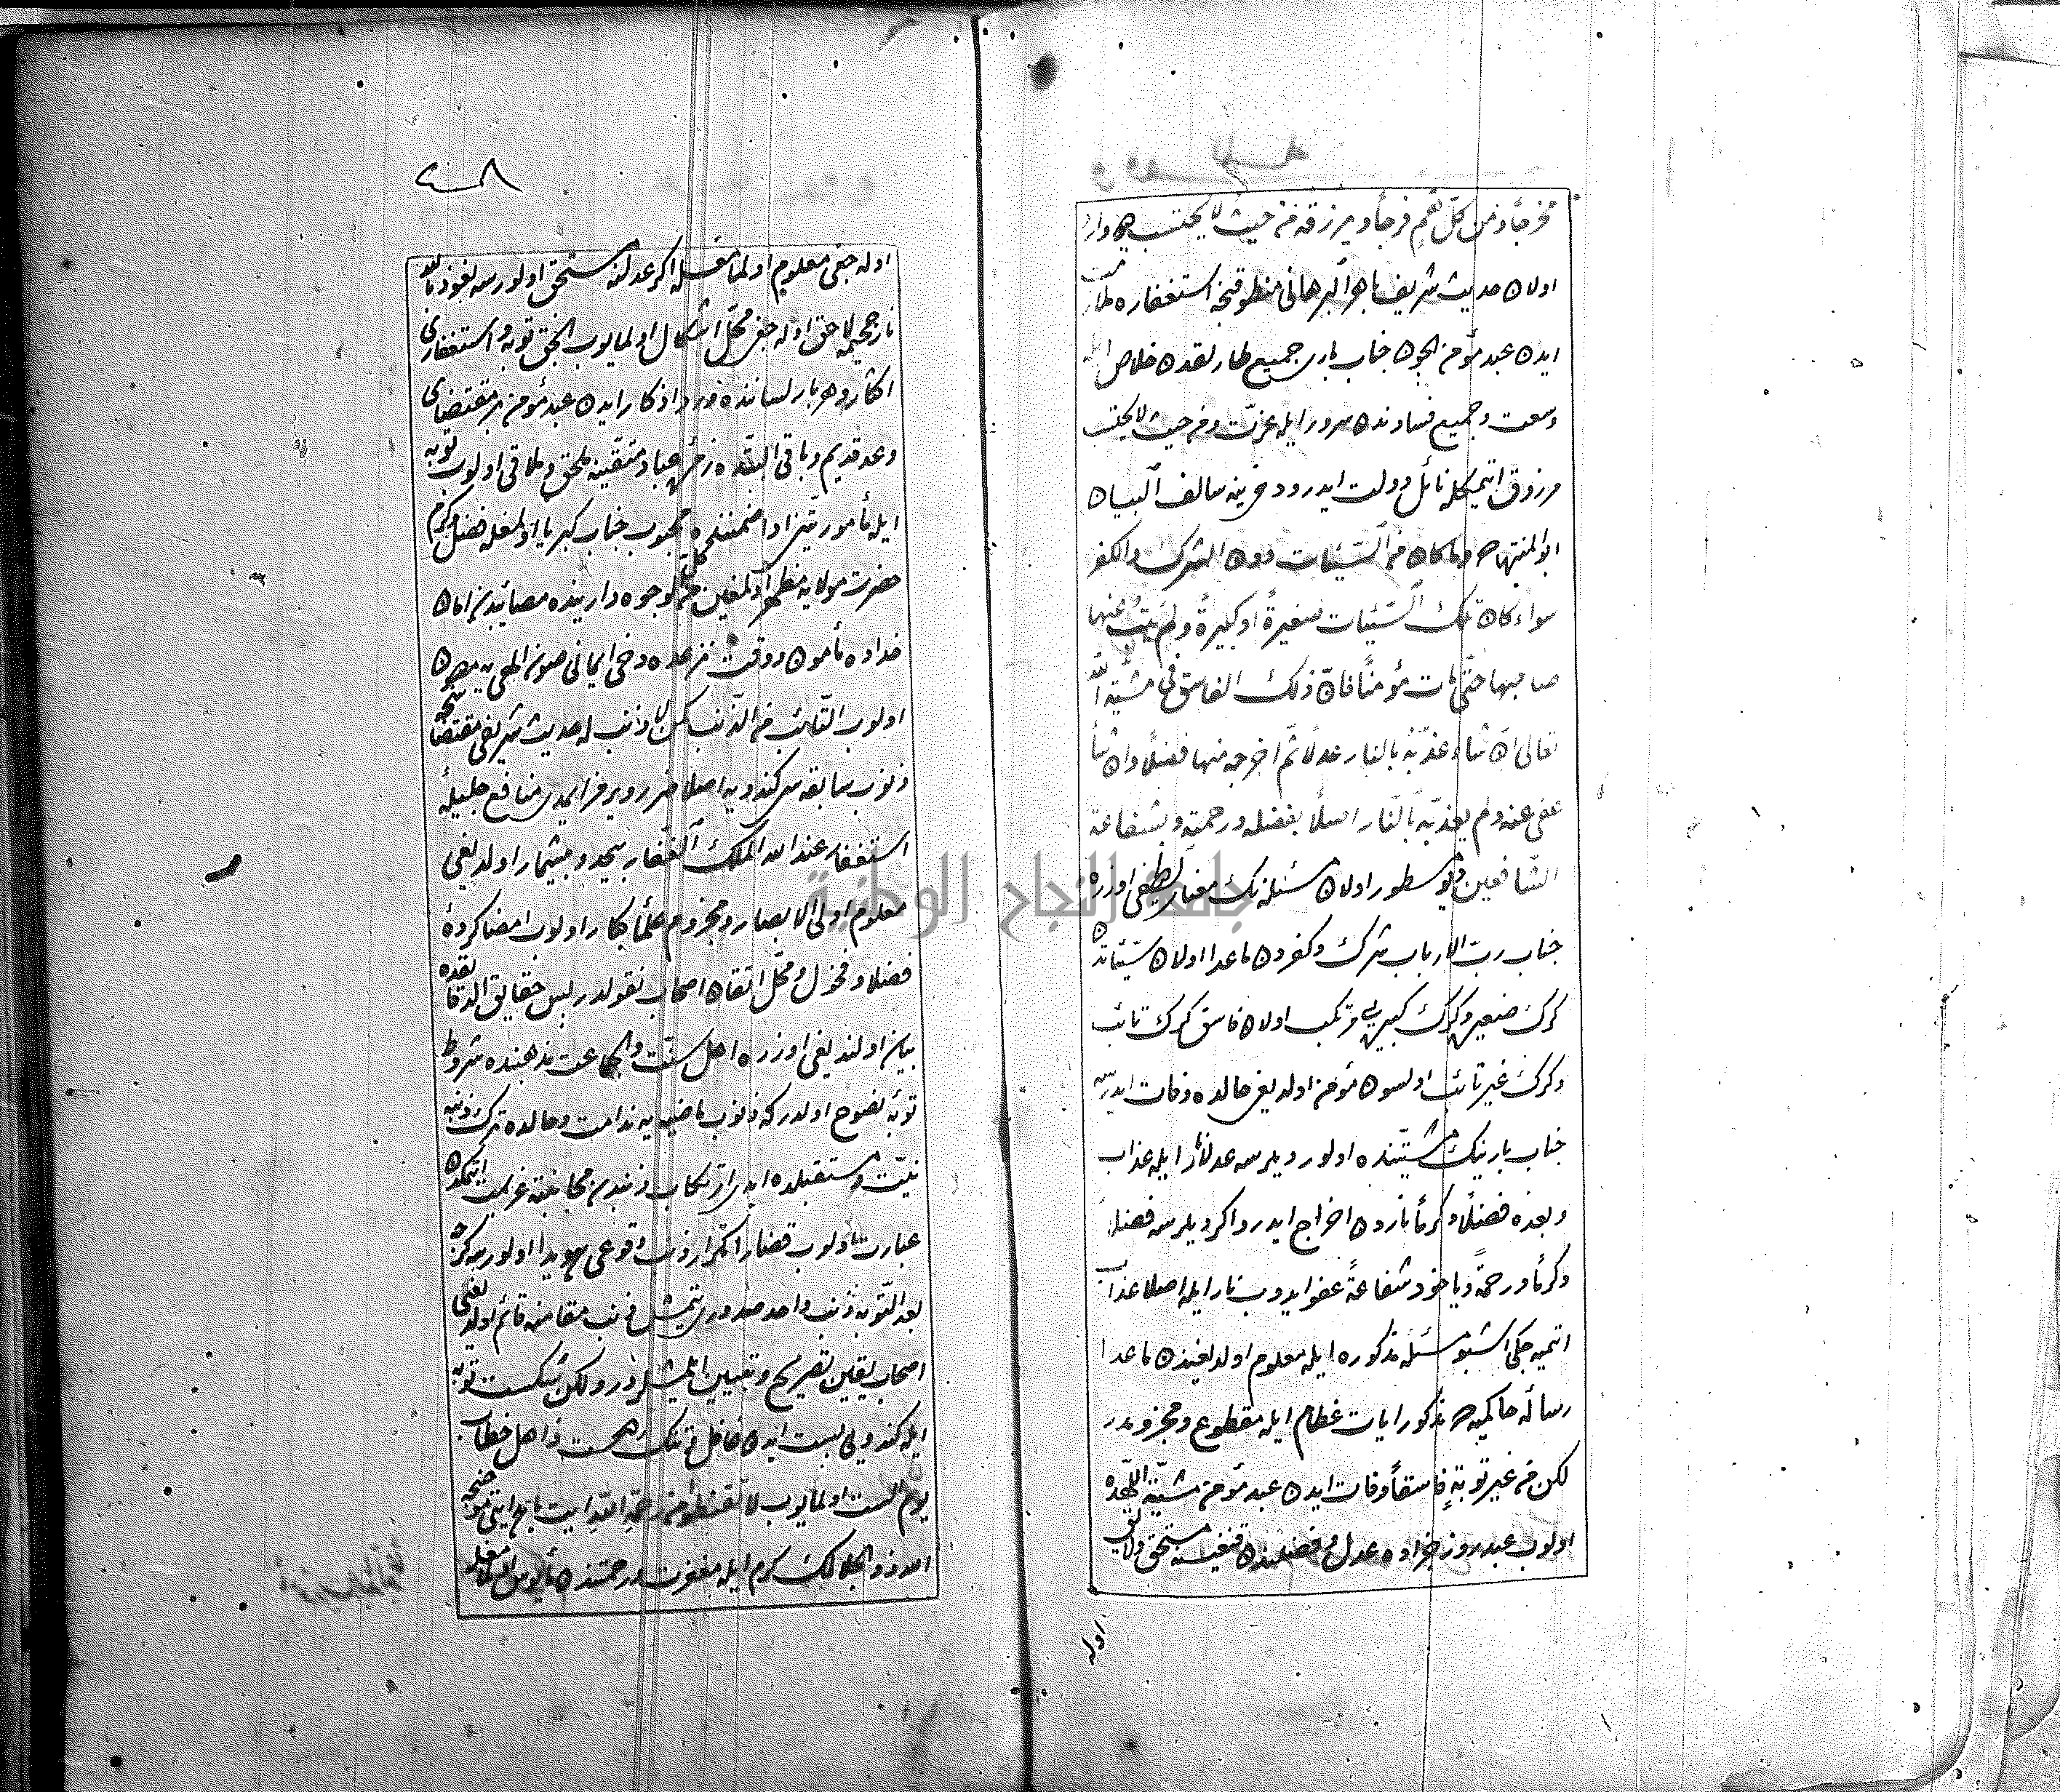 مخرجاً ومن كلّ همّ فرجاً ويرزقه من حيث لا يحتسب وارد
اولان حديث شريف باهر البرهانى منطوقنجه استغفاره ملازمت
ايدن عبد مؤمن ايچون جناب بارى جميع طارلقدن خلاص ايله
وسعت وجميع غمدن سرور ايله عزّت ومن حيث لا يحتسب
مرزوق اتمكله نائل دولت ايدر ودخى ينه سالف البيان
ابو المنتهى وما كان من السّيّئات دون الشرك والكفر
سواء كان تلك السّيّئات صغيرةً او كبيرةً ولم يتب عنها
صاحبها حتّى مات مؤمناً فانّ ذلك الفاسق فى مشيّة الله
تعالى ان شاء عذّبه بالنار عدلاً ثمّ اخرجه منها فضلاً وان شاء
عفى عنه ولم يعذّبه بالنّار اصلاً بفضله ورحمته وبشفاعة
الشّافعين مسطور اولان مسئله نك معناى لطيفى اوزره
جناب ربّ الارباب شرك وكفردن ماعدا اولان سيّئاتدن
كرك صغيره وكرك كبيره يى مرتكب اولان فاسق كرك تائب
وكرك غير تائب اولسون مؤمن اولديغى حالده وفات ايدرسه
جناب بارينك مشيّتنده اولور ديلرسه عدلاً نار ايله عذاب
وبعده فضلاً وكرماً ناردن اخراج ايدر واكر ديلرسه فضلاً
وكرماً ورحمةً ويا خود شفاعةً عفو ايدوب نار ايله اصلا عذاب
اتميه جكى اشبو مسئلهٔ مذكوره ايله معلوم اولديغندن ماعدا
رسالهٔ حاكميه ده مذكور ايات عظام ايله مقطوع ومجزومدر
لكن من غير توبةٍ فاسقاً وفات ايدن عبد مؤمن مشيّة اللهده
اولوب عبد روز جزاده عدل وفضلندن قنغيسنه مستحق ولايق
اوله
اوله جغى معلوم اولمامغله اكر عدلنه مستحق اولورسه نعوذ بالله
نار جحيمه لاحق اوله جغى محلّ اشكال اولمايوب انجق توبه واستغفارى
اكثار وهر بار لسانده ورد واذكار ايدن عبد مؤمن بر مقتضاى
وعد قديم وباقى البتّه ده زمرهٔ عباد متّقينه ملحق وملاقى اولوب توبه
ايله مأموريّتن ادا ضمننده محبوب جناب كبريا اولمغله فضل وكرم
حضرت مولايه مظهر اولمغين من كل الوجوه دارينده مصائبدن امان
خداده مأمون ووقت نزعده دخى ايمانى صون الهى يه مصون
اولوب التّائب من الذّنب كمن لا ذنب له حديث شريفى مقتضاسنجه
ذنوب سابقه سى كندويه اصلا ضرر ويرمز ايمدى منافع جليلهٔ
استغفار عند الله الملك الغفّار بيحد وبيشمار اولديغى
معلوم اولى الابصار ومجزوم علماى كبار اولوب امضا كردهٔ
فضلا وفحول ومحلّ اتقان اصحاب نقولدر پس حقايق الدقايقده
بيان اولنديغى اوزره اهل سنّت والجماعت مذهبنده شروط
توبهٔ نصوح اولدر كه ذنوب ماضيه يه ندامت وحالده ترك ذنبه
نيّت ومستقبلده ابدى ارتكاب ذنبدن مجانبته عزيمت ايتمكدن
عبارت اولوب قضارا تكرار ذنب وقوعى هويدا اولورسه كرك
بعد التّوبه ذنب واحد صدورى يتمش ذنب مقامنه قائم اولديغنى
اصحاب يقين تصريح وتبيين ايلمشلردر ولكن شكست توبه
ايله كندولى پست ايدن غافل اهل خطاب
يوم الست اولمايوب لا تقنطوا من رحمة الله ايت باهر
الله ذو الجلالك كرم ايله مغفرت ورحمتندن مأيوس اولمامغله